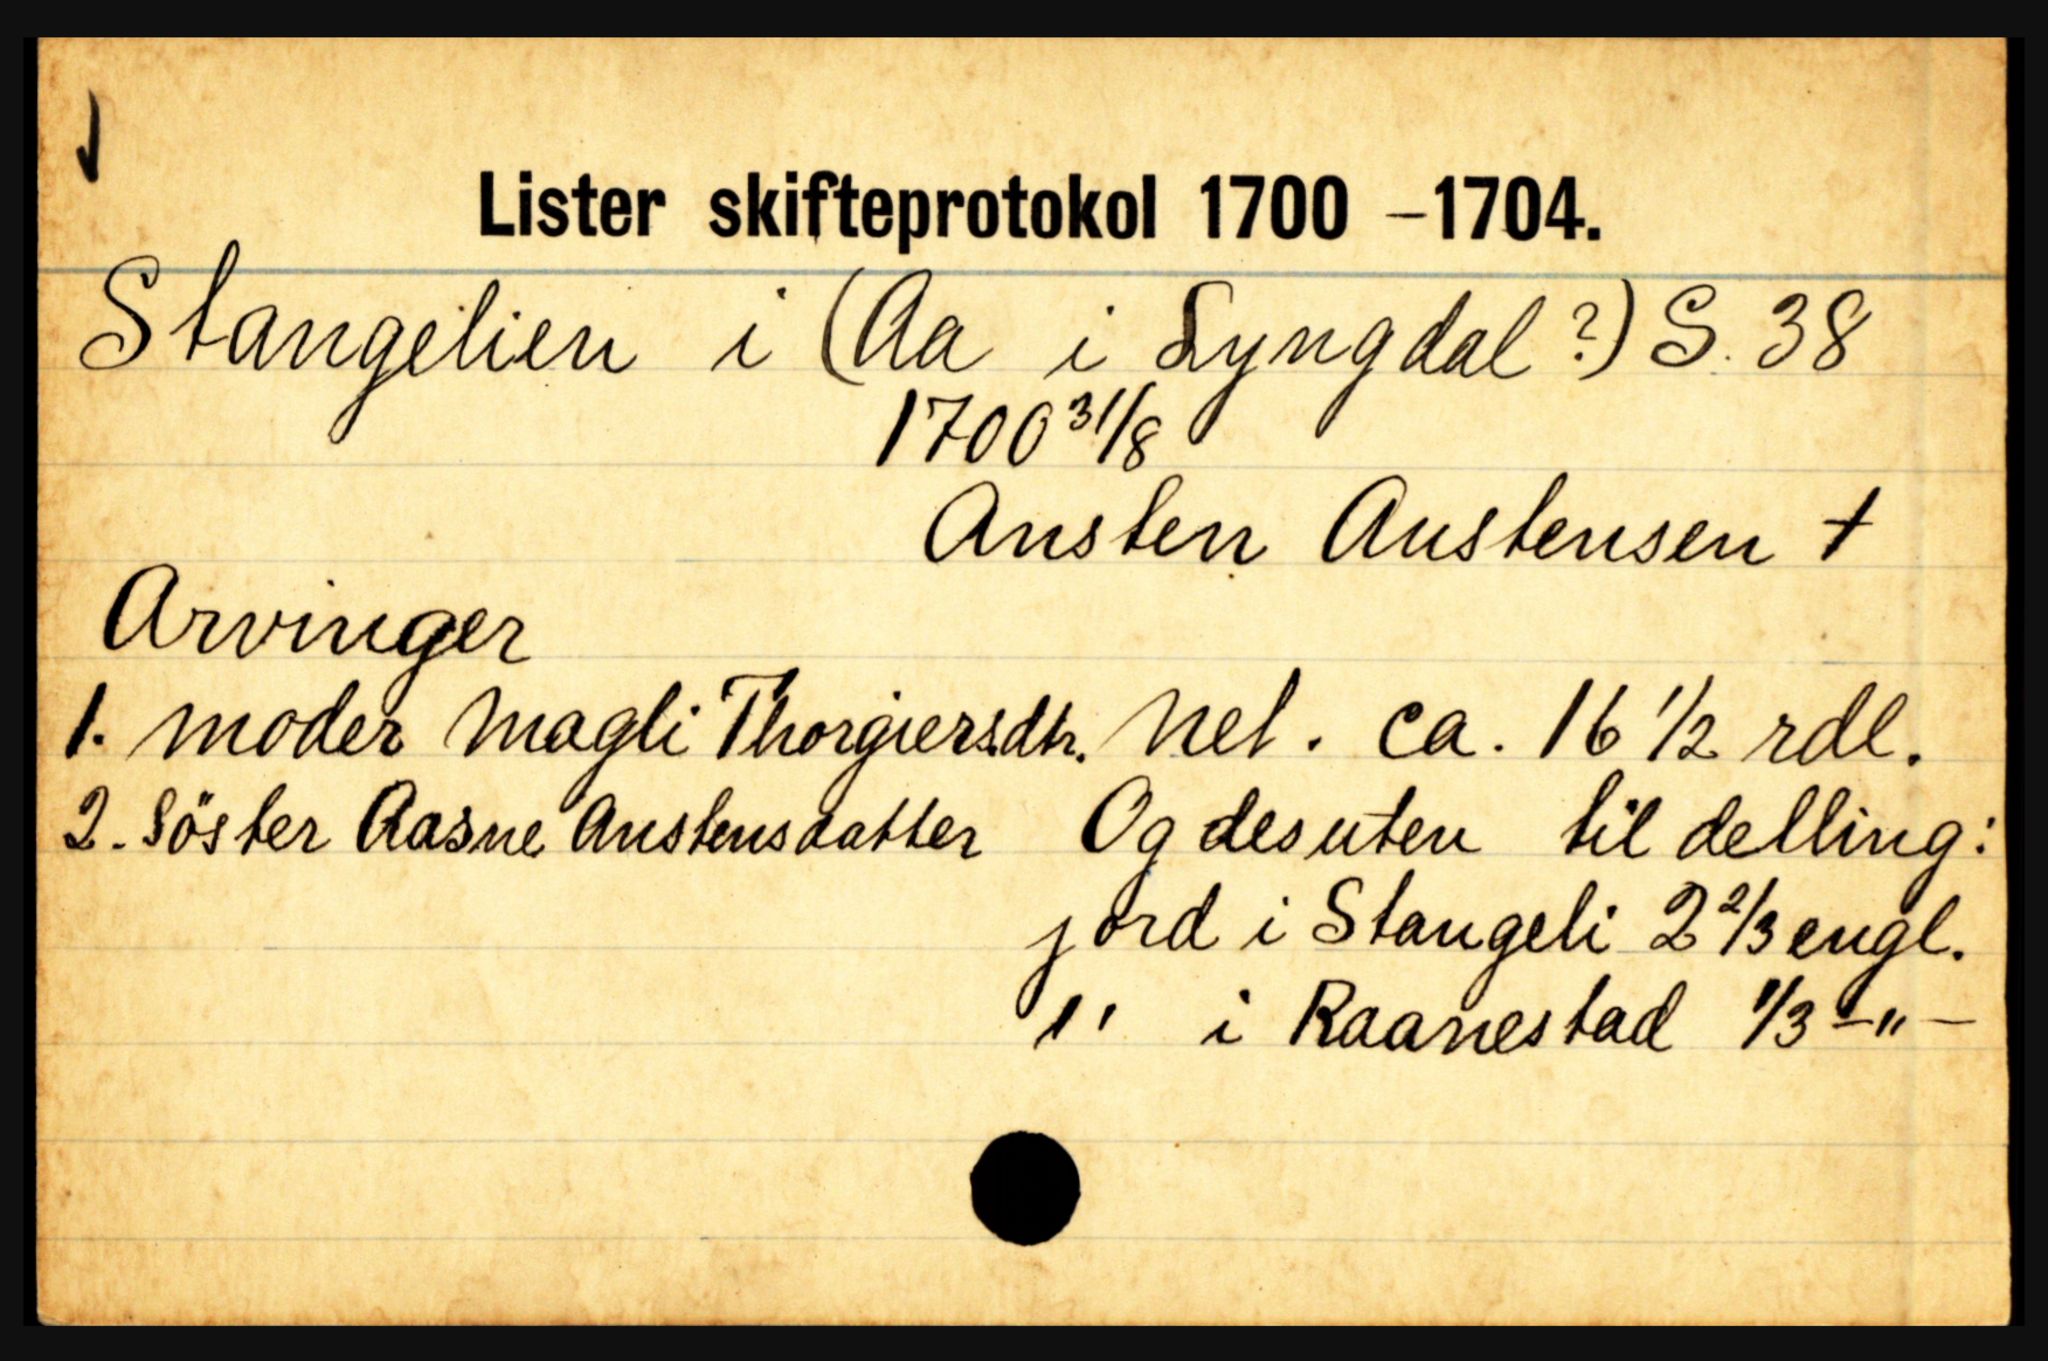 Lister skifteprotokol 1700 – 1704.
Stangelien i (Aa i Lyngdal?) S. 38
1700 31/8
Ansten Anstensen +
Arvinger
1. moder Magli Thorgiersdtr. Net. ca. 16 1/2 rdl.
2. Söster Aasne Anstensdatter Og desuten til delling:
jord i Stangeli 2 2/3 engl.
" i Raanestad 1/3 –"–